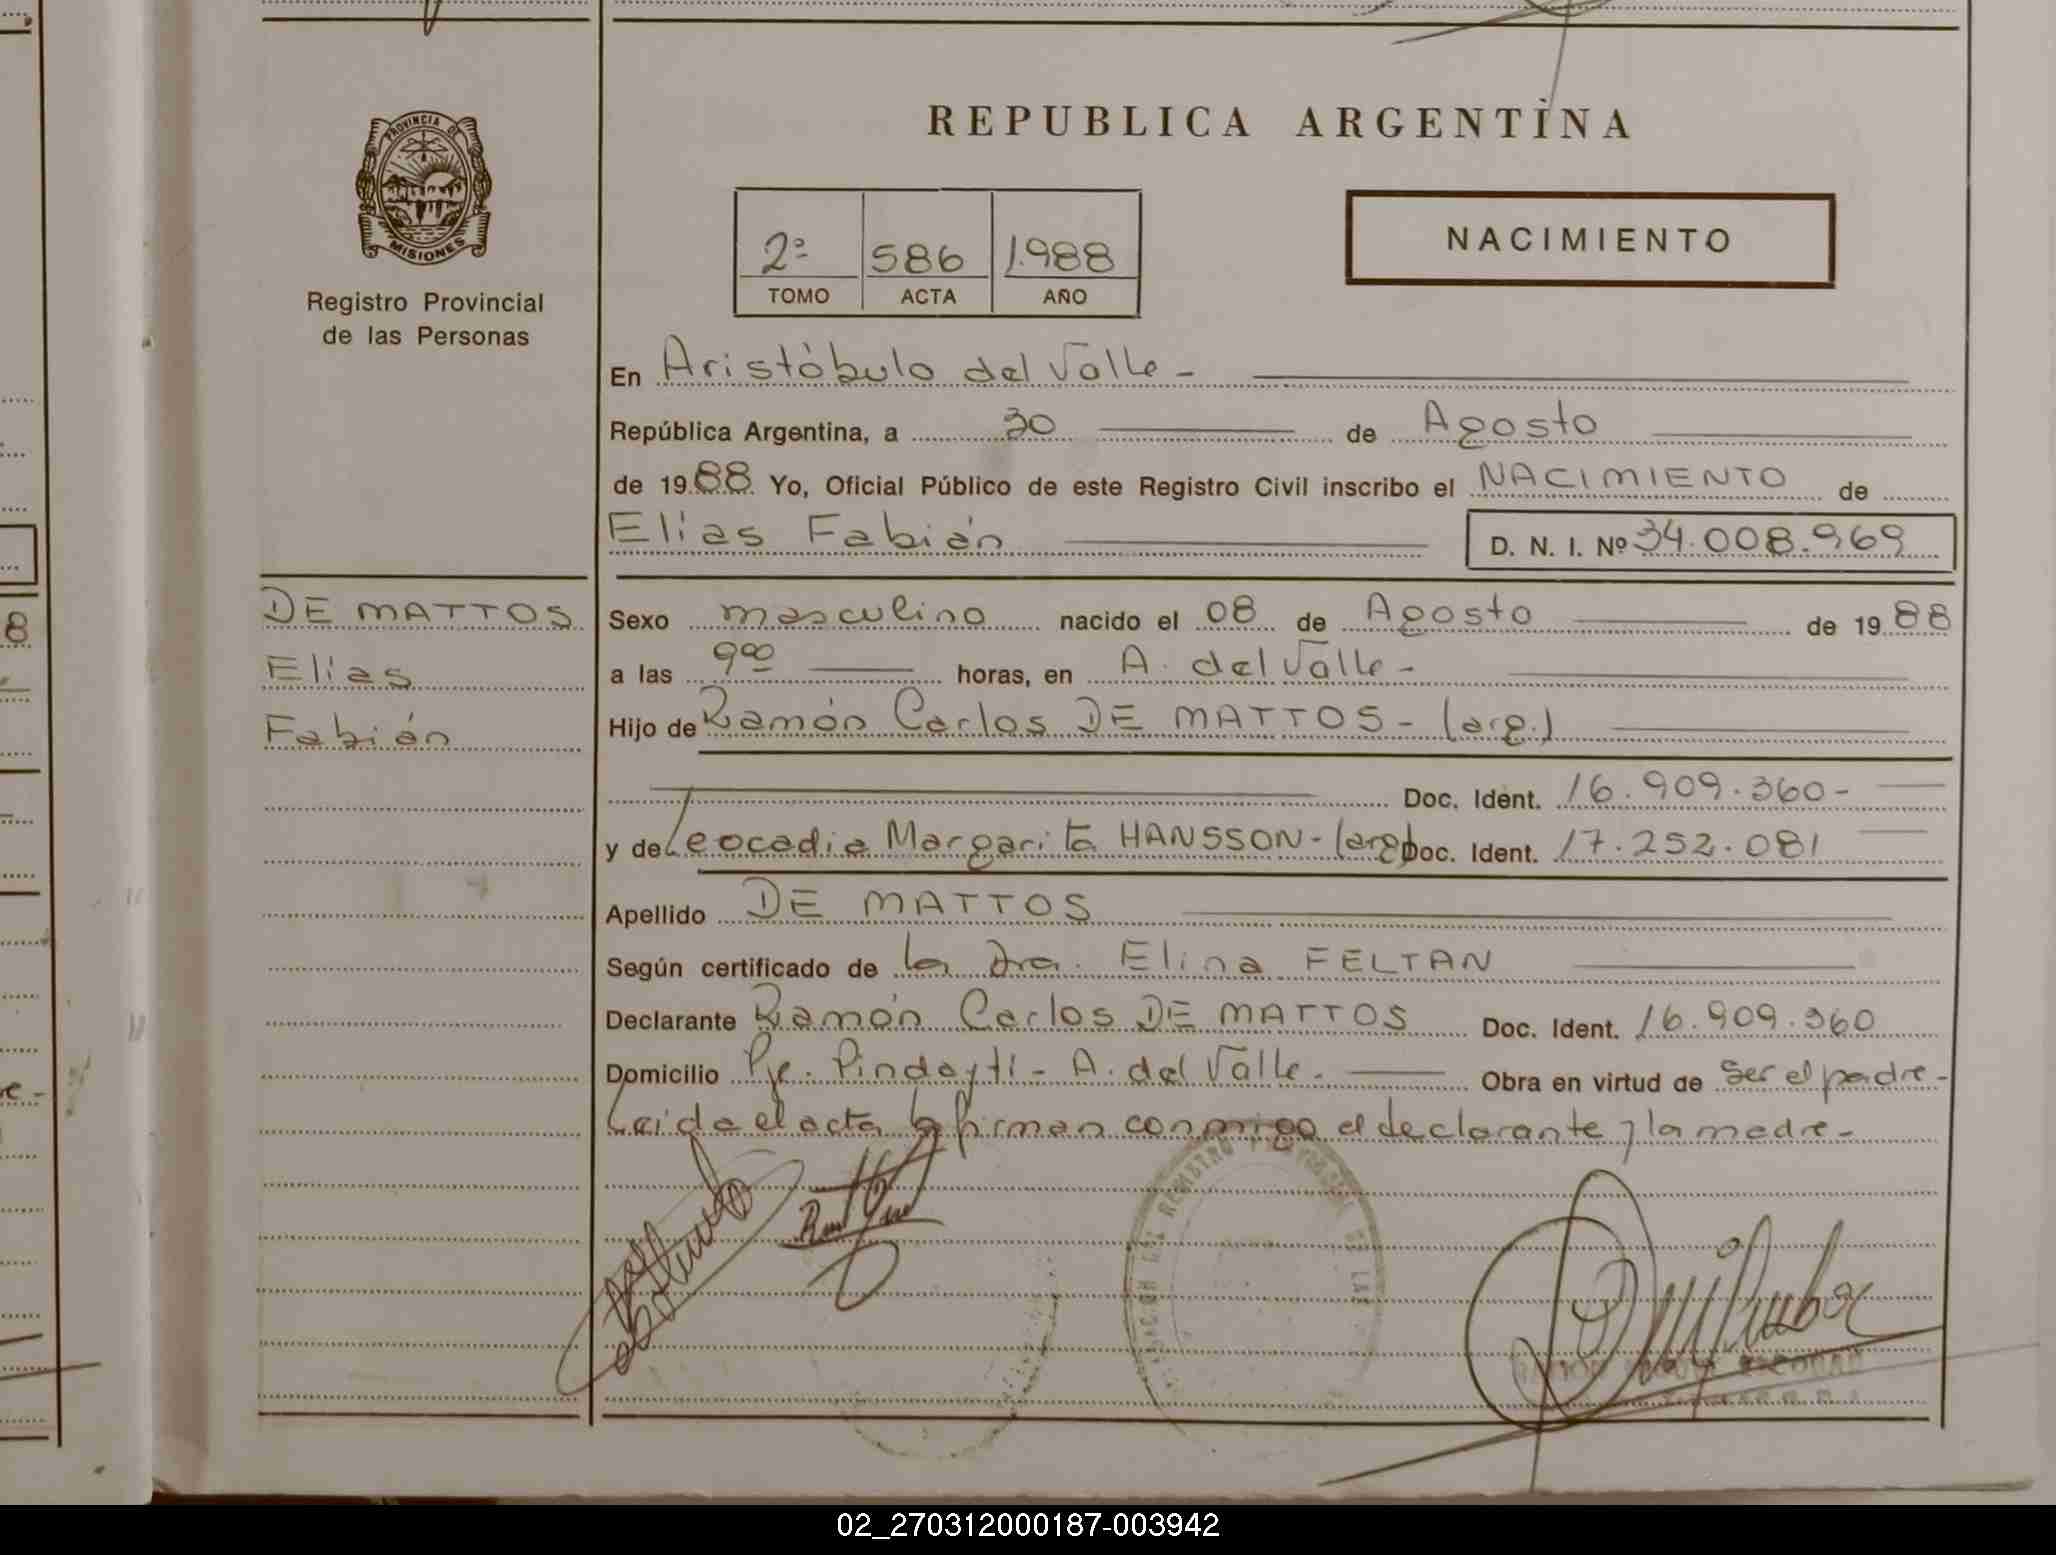 REPUBLICA ARGENTINA
PROVINCIA DE
MISIONES
Registro Provincial
de las Personas
2º 586 1.988
TOMO ACTA AÑO
NACIMIENTO
En Aristóbulo del Valle -
República Argentina, a 30 de Agosto
de 1988 Yo, Oficial Público de este Registro Civil inscribo el NACIMIENTO de
Elías Fabián D. N. I. Nº 34.008.969
DE MATTOS
Elías
Fabián
Sexo masculino nacido el 08 de Agosto de 1988
a las 9ºº horas, en A. del Valle -
Hijo de Ramón Carlos DE MATTOS - (arg.)
Doc. Ident. 16.909.360 -
y de Leocadia Margarita HANSSON - (arg) Doc. Ident. 17.252.081
Apellido DE MATTOS
Según certificado de la Dra. Elina FELTAN
Declarante Ramón Carlos DE MATTOS Doc. Ident. 16.909.360
Domicilio Pje. Pindaytí - A. del Valle - Obra en virtud de ser el padre -
Leida el acta la firman conmigo el declarante y la madre -
02_270312000187-003942